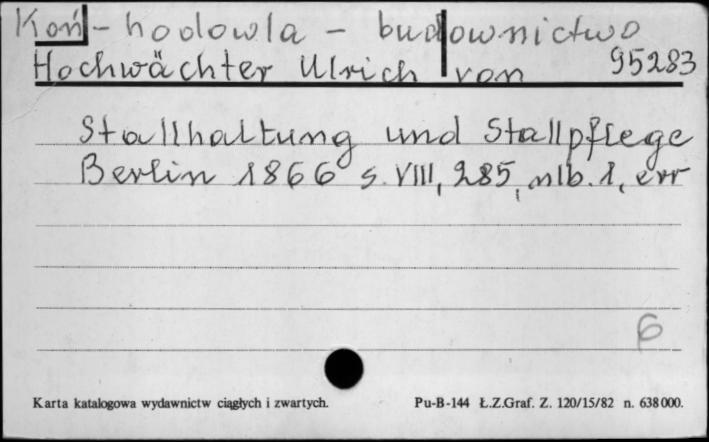 Koń - hodowla - budownictwo
Hochwächter Ulrich von 95283
Stallhaltung und Stallpflege
Berlin 1866 s. VIII, 285, nlb. 1, err
6
Karta katalogowa wydawnictw ciągłych i zwartych. Pu-B-144 Ł.Z.Graf. Z. 120/15/82 n. 638000.